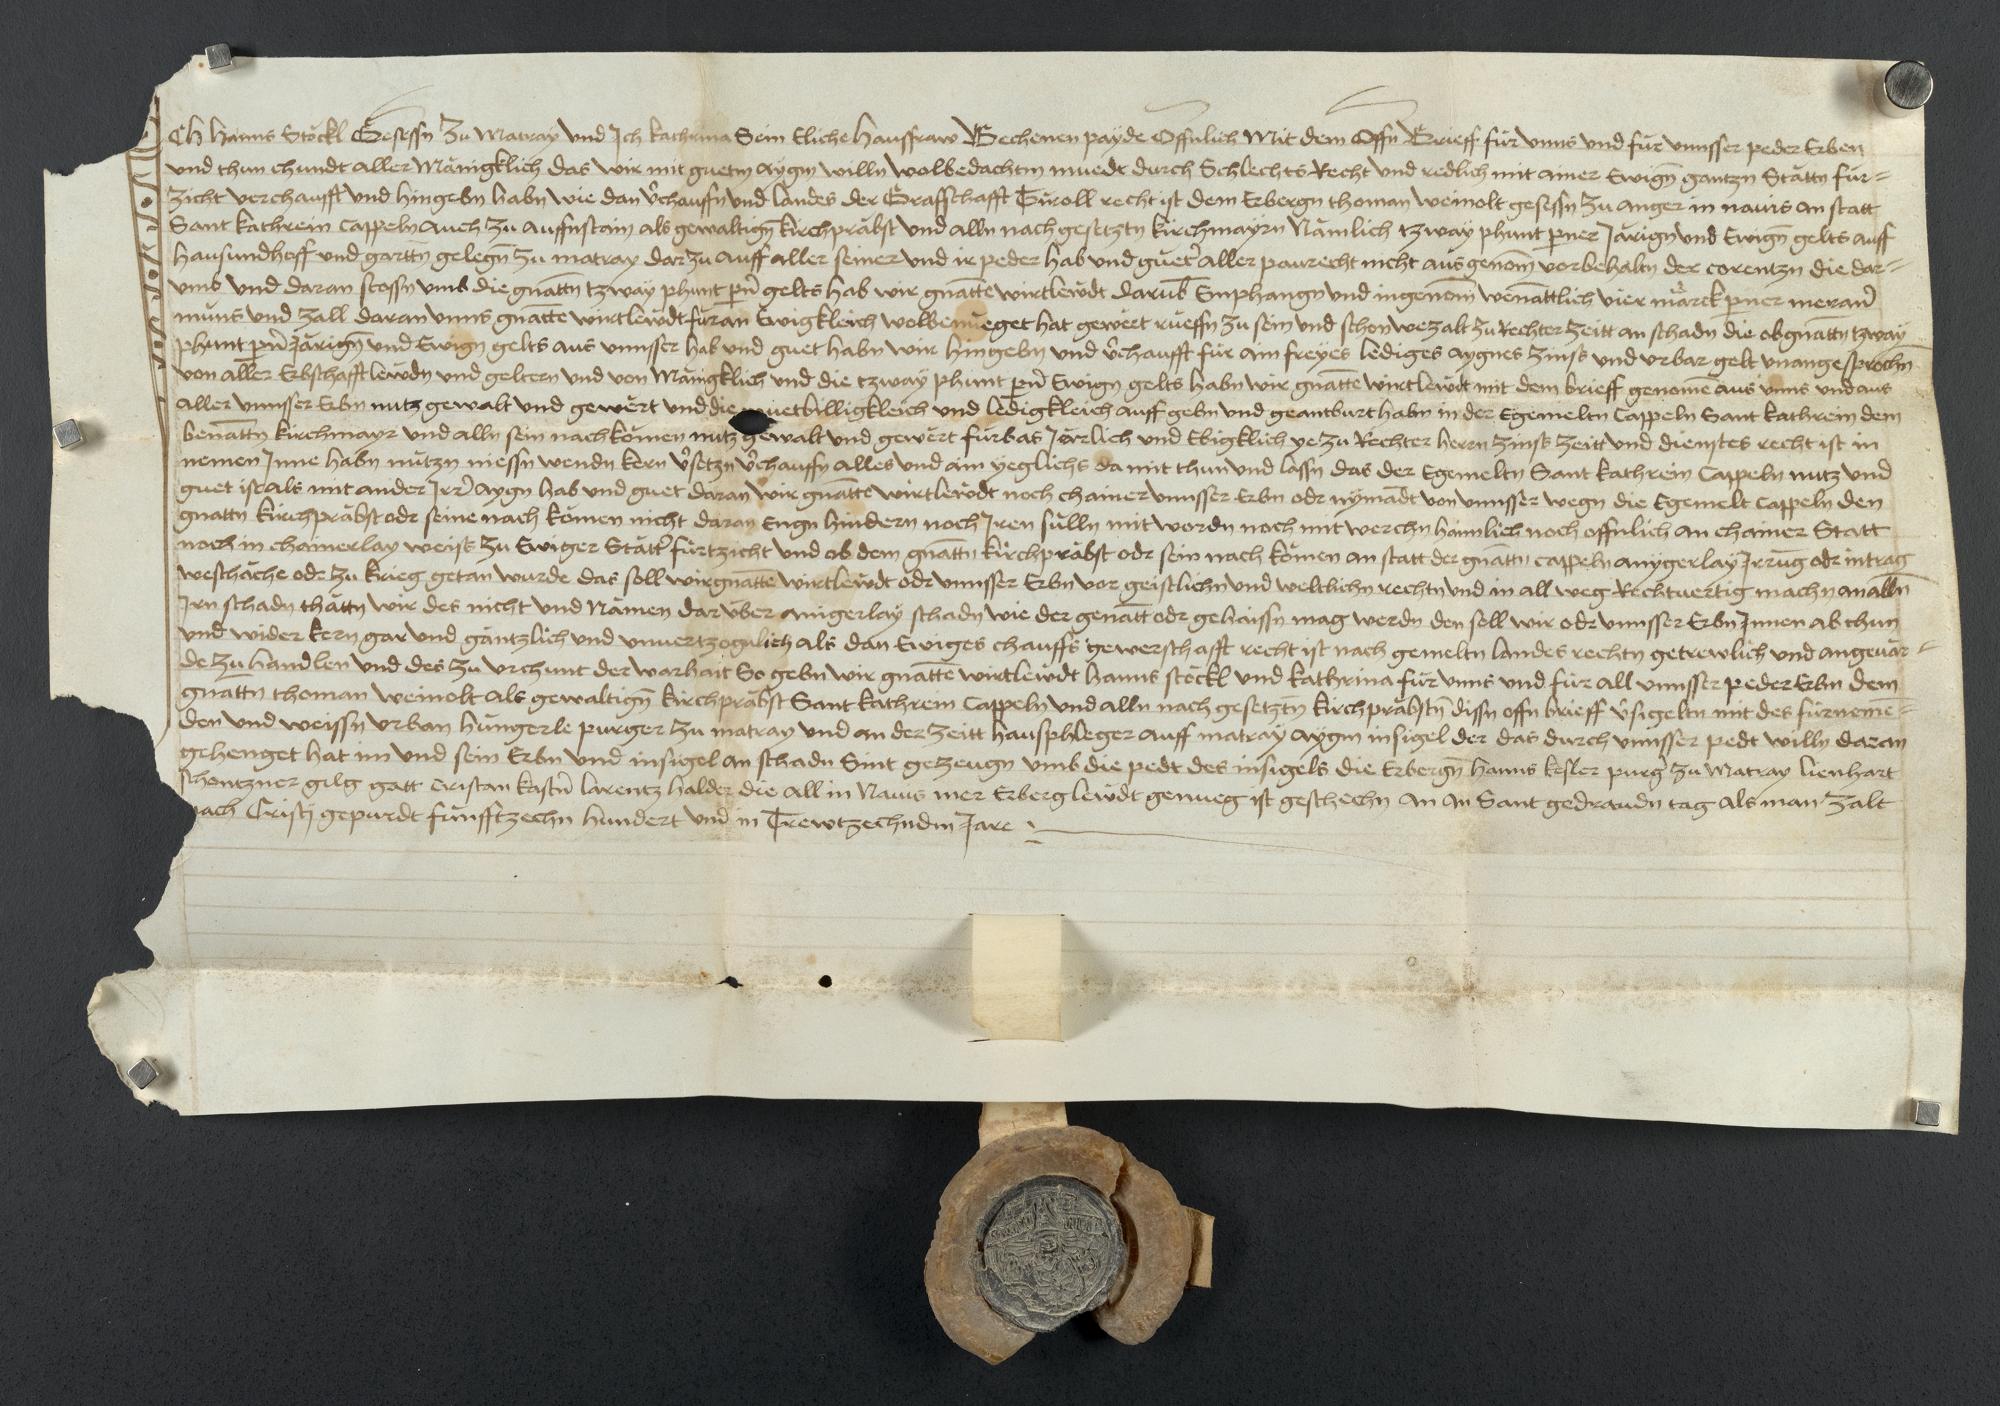 Ch hanns Stöckl Gesessn zu Matray und Ich kathrina Sein Eliche haussfraw Bechenen payde Offnlich Mit dem Offn Brieff für unns und für unnsser peder Erben
und thun chundt aller Mänigklich das wir mit guetm aygm willn wolbedachtm muedt durch Schlechts Recht und redlich mit ainer Ewign gantzn Stättn für-
zicht verchaufft und hingebn habn wie dan vchauffn und landes der Grafschafft Tiroll recht ist dem Erbergn thoman weinolt gesessn zu anger in navis an statt
Sant kathrein cappeln auch zu auffnstain als gewaltign kirchpräbst und alln nach gesetztn kirchmayrn Nämlich tzway phunt pner Järign und Ewign gelts auff
hausundhoff und garttn gelegn zu matray dar zu auff aller seiner und ir peder hab und gueter aller paurecht nicht ausgenom vorbehaltn der corentzn die dar-
umb und daran stossn umb die gnattn tzway phunt pn gelts hab wir gnatte wirtlewdt darub Emphangn und ingenom wenattlich vier marck pner meran
muns und zall daran unns gnatte wirtlewdt füran Ewigkleich wolbenueget hat gewert rueffn zu sein und schon wezalt zu Rechter zeitt an schadn die obgnattn tzway
phunt pn Järign und Ewign gelts aus unnsser hab und guet habn wir hingebn und vchaufft für ain freyes lediges aygnes zinss und urbar gelt unangesprochn
von aller Erbschafft lewdn und geltern und von Mänigklich und die tzway phunt pn Ewign gelts habn wir gnatte wirtlewdt mit dem brieff genome aus unns und aus
aller unnsser Erbn nutz gewalt und gewert und die billigkleich und ledigkleich auff gebn und geantburt habn in der Egemeltn Cappeln Sant kathrein dem
benattn kirchmayr und alln sein nachkömen nutz gewalt und gewert fürbas Järlich und Ebigklich ye zu Rechter herrn zinss zeitt und dienstes recht ist in
nemen Inne habn nutzn niessn wendn kern vsetzn vchauffn alles und ain yeglichs da mit thun und lassn das der Egemeltn Sant kathrein Cappeln nutz und
guet ist als mit ander Irr aygn hab und guet daran wir gnatte wirtlewdt noch chainer unnsser Erbn odr nymadt von unnsser wegn die Egemelt Cappeln den
gnattn kirchpräbst odr seine nach kömen nicht daran Engn hindern noch Iren sulln mit wordn noch mit werchn haimlich noch offnlich an chainer Statt
noch in chainerlay weiss zu Ewiger Stätt fürtzicht und ob dem gnattn kirchpräbst odr sein nach kömen an statt der gnattn cappeln anygerlay Irrug odr intrag
weschäche odr zu krieg getan wurde das soll wir gnatte wirtlewdt odr unnsser Erbn vor geistlichn und weltlichn rechtn und in all weg Rechtvertig machn an alln
Irn schadn thättn wir des nicht und Nämen dar über anigerlay schadn wie der genatt odr gehaissn mag werdn den soll wir odr unnsser Erbn Innen ab thun
und wider kern gar und gäntzlich und unvertzognlich als dan Ewiges chauffs gewerschafft recht ist nach gemeltn landes rechtn getrewlich und angevär-
de zu handlen und des zu urchunt der warhait So gebn wir gnatte wirtlewdt hanns stöckl und kathrina für unns und für all unnsser peder Erbn dem
gnattn thoman weinolt als gewaltign kirchpräbst Sant kathrein Cappeln und alln nach gesetztn kirchpräbstn dissn offn brieff vsigeltn mit des fürneme-
den und weissn urban hüngerle purger zu matray und an der zeitt hausphleger auff matray aygm insigel der das durch unnsser pedt willn daran
gehenget hat im und sein Erbn und insigel an schadn Sint gezeugn umb die pedt des insigels die Erbergn hanns kesler purg zu Matray lienhart
schontzner gilg gatt Cristan kastn larentz halder die all in Navis mer Erberg lewdt genueg ist geschechn an an Sant gedraudn tag als man zalt
nach Cristj gepurdt funfftzechn hundert und in Trewtzechndm Jare